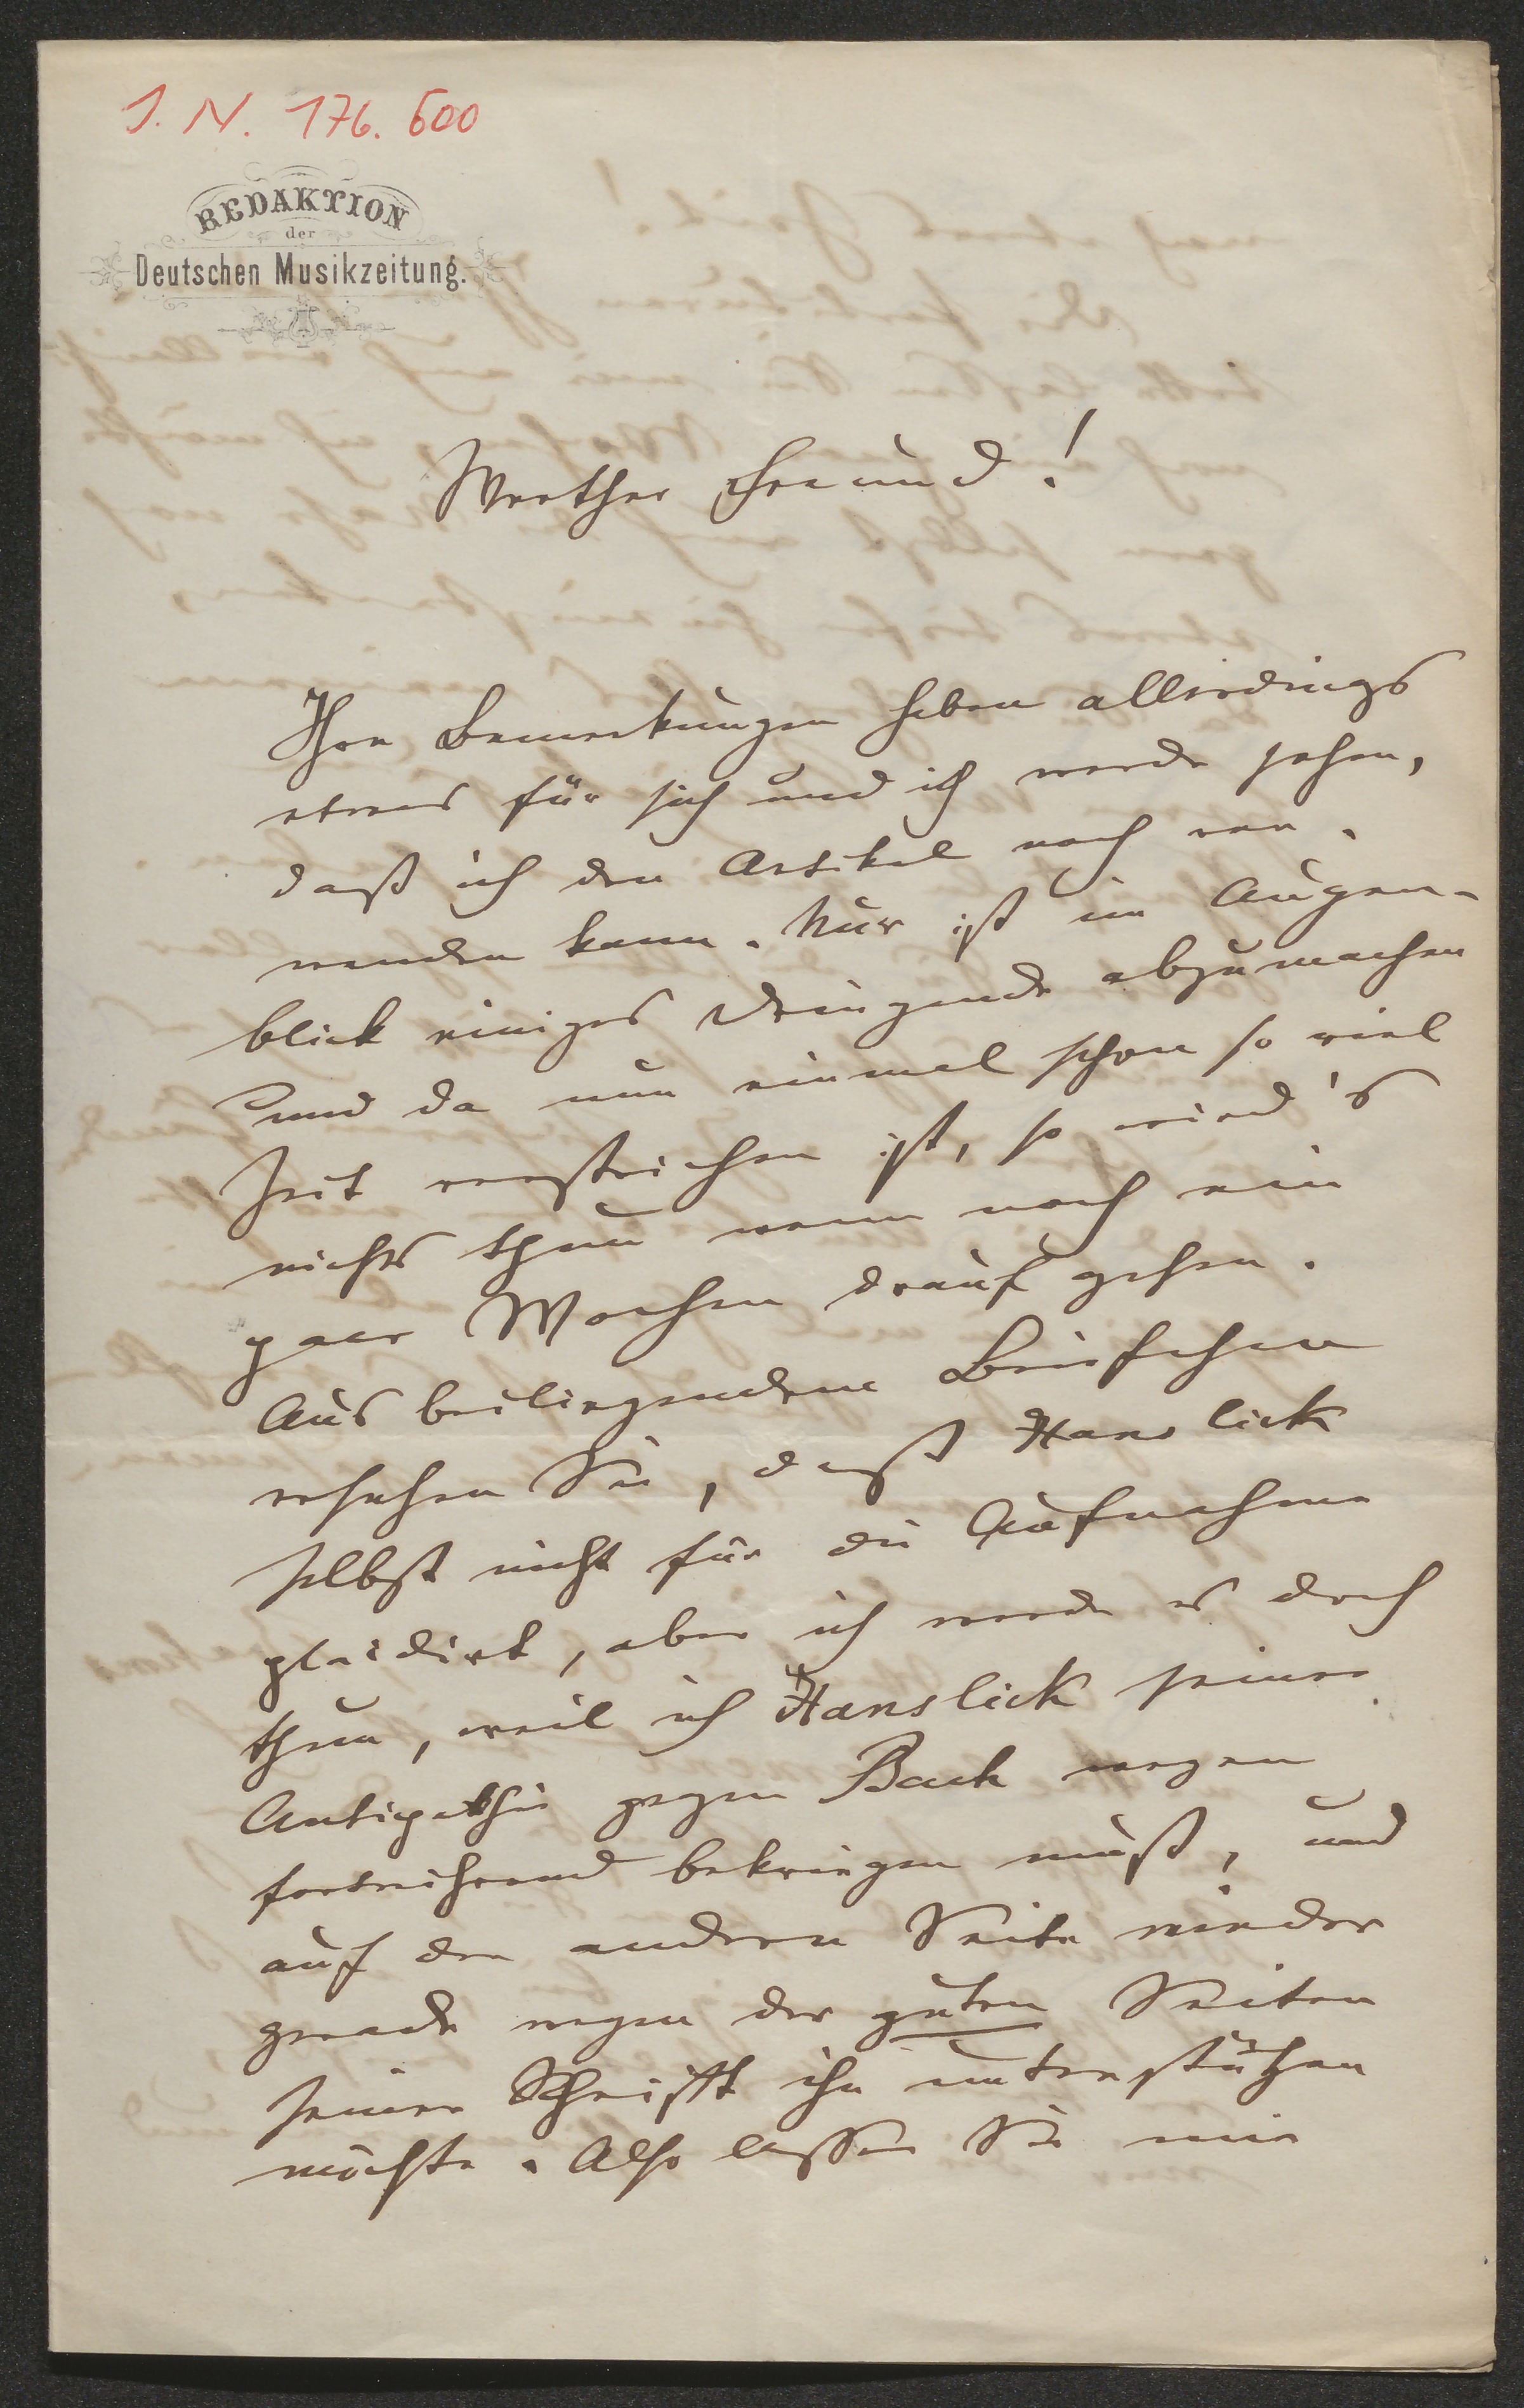 J. N. 176.600
REDAKTION
der
Deutschen Musikzeitung.
Werther Freund!
Ihre Bemerkungen haben allerdings
etwas für sich und ich werde sehen,
daß ich den Artikel noch ver-
wenden kann. Nur ist im Augen-
blick einiges Dringende abzumachen
und da nun einmal schon so viel
Zeit verstrichen ist, so wird's
nichts thun wenn noch ein
paar Wochen drauf gehen.
Aus beiliegendem Briefchen
ersehen Sie, daß Hanslick
selbst nicht für die Aufnahme
plaidirt, aber ich werde es doch
thun, weil ich Hanslick seiner
Antipathie gegen Bach wegen
fortwährend bekriegen muß, und
auf der andern Seite wieder
gerade wegen der guten Seiten
seiner Schrifft ihn unterstützen
möchte. Also lassen Sie mir